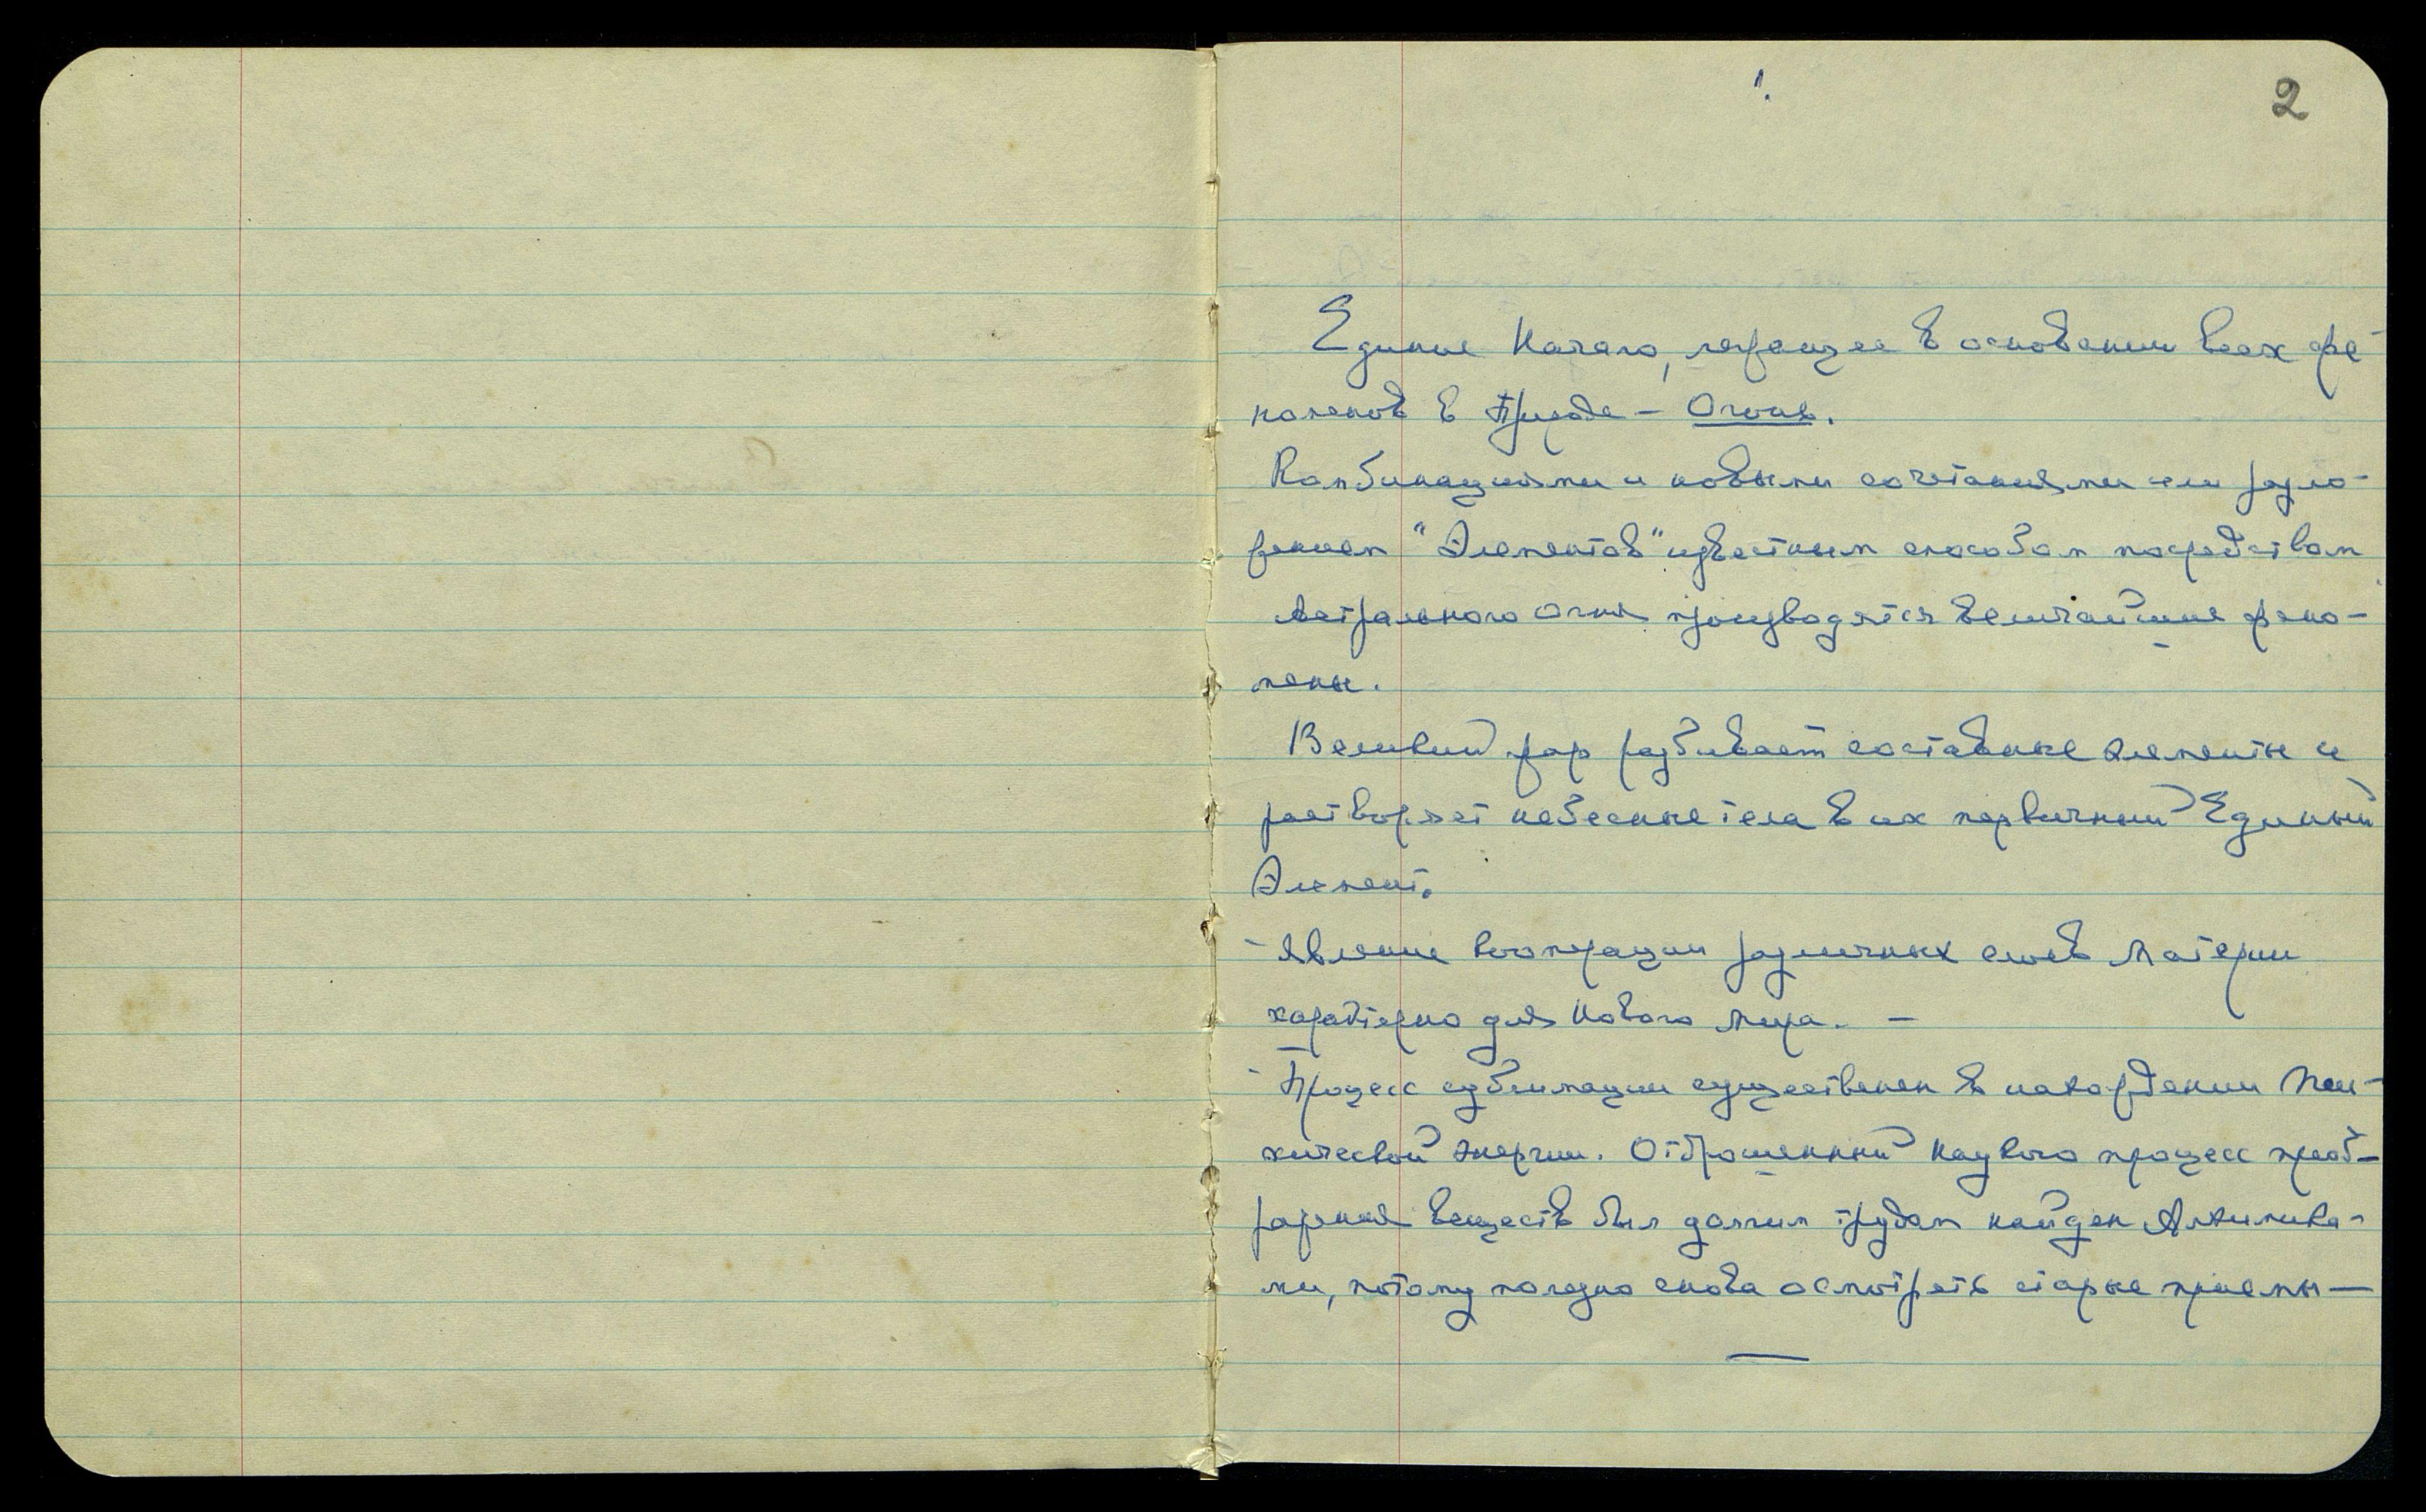 1.
2
Единое Начало, лежащее в основании всех фе-
номенов в Природе — Огонь.
Комбинациями и новыми сочетаниями или разло-
жением "Элементов" известным способом посредством
Астрального Огня производятся величайшие фено-
мены.
Великий жар разбивает составные элементы и
растворяет небесные тела в их первичный Единый
Элемент.
Явление кооперации различных слоев Материи
характерно для Нового Мира. —
Процесс сублимации существенен в нахождении Пси-
хической энергии. Отброшенный Наукою процесс преоб-
ражения веществ был долгим трудом найден Алхимика-
ми, потому полезно снова осмотреть старые приемы —